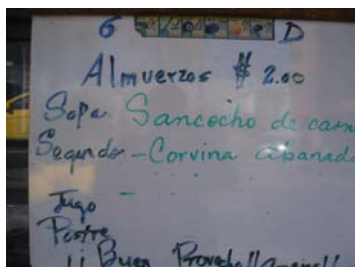 6 D
Almuerzos $ 2.00
Sopa Sancocho de carn
Segundo - Corvina apanada
Jugo -
Postre
¡¡ Buen Provecho!!